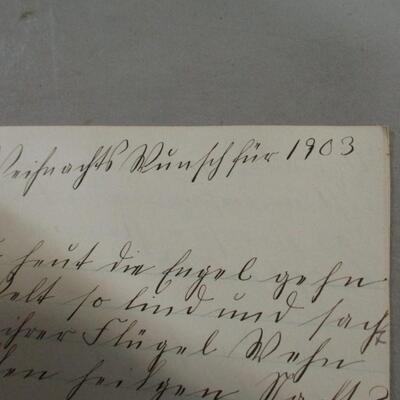 Weihnachts Wunsch für 1903
heut die Engel gehn
so lind und sacht
ihrer Flügel Wehn
heilgen